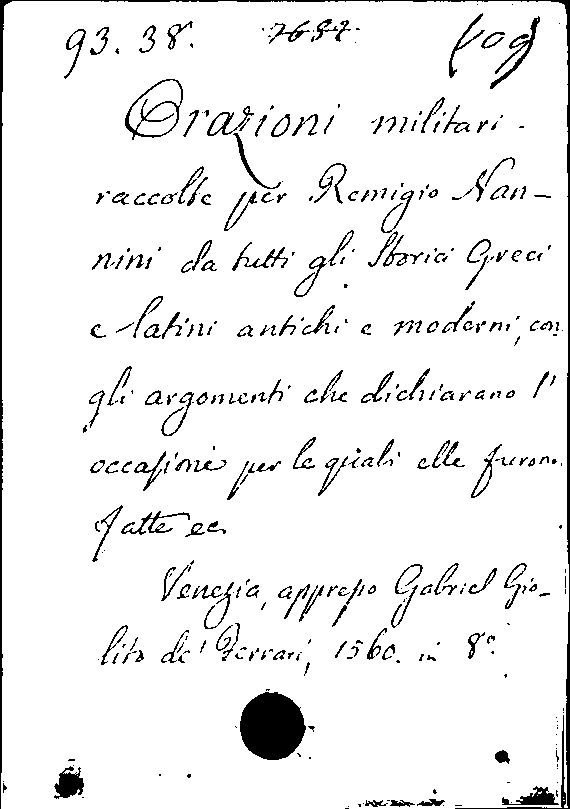 93. 38. 7687
Orazioni militari.
raccolte per Remigio Nan-
nini da tutti gli Storici Greci
e latini antichi e moderni, con
gli argomenti che dichiarano l'
occasione per le quali elle furono
fatte ec.
Venezia, appresso Gabriel Gio-
lito de' Ferrari, 1560. in 8º.